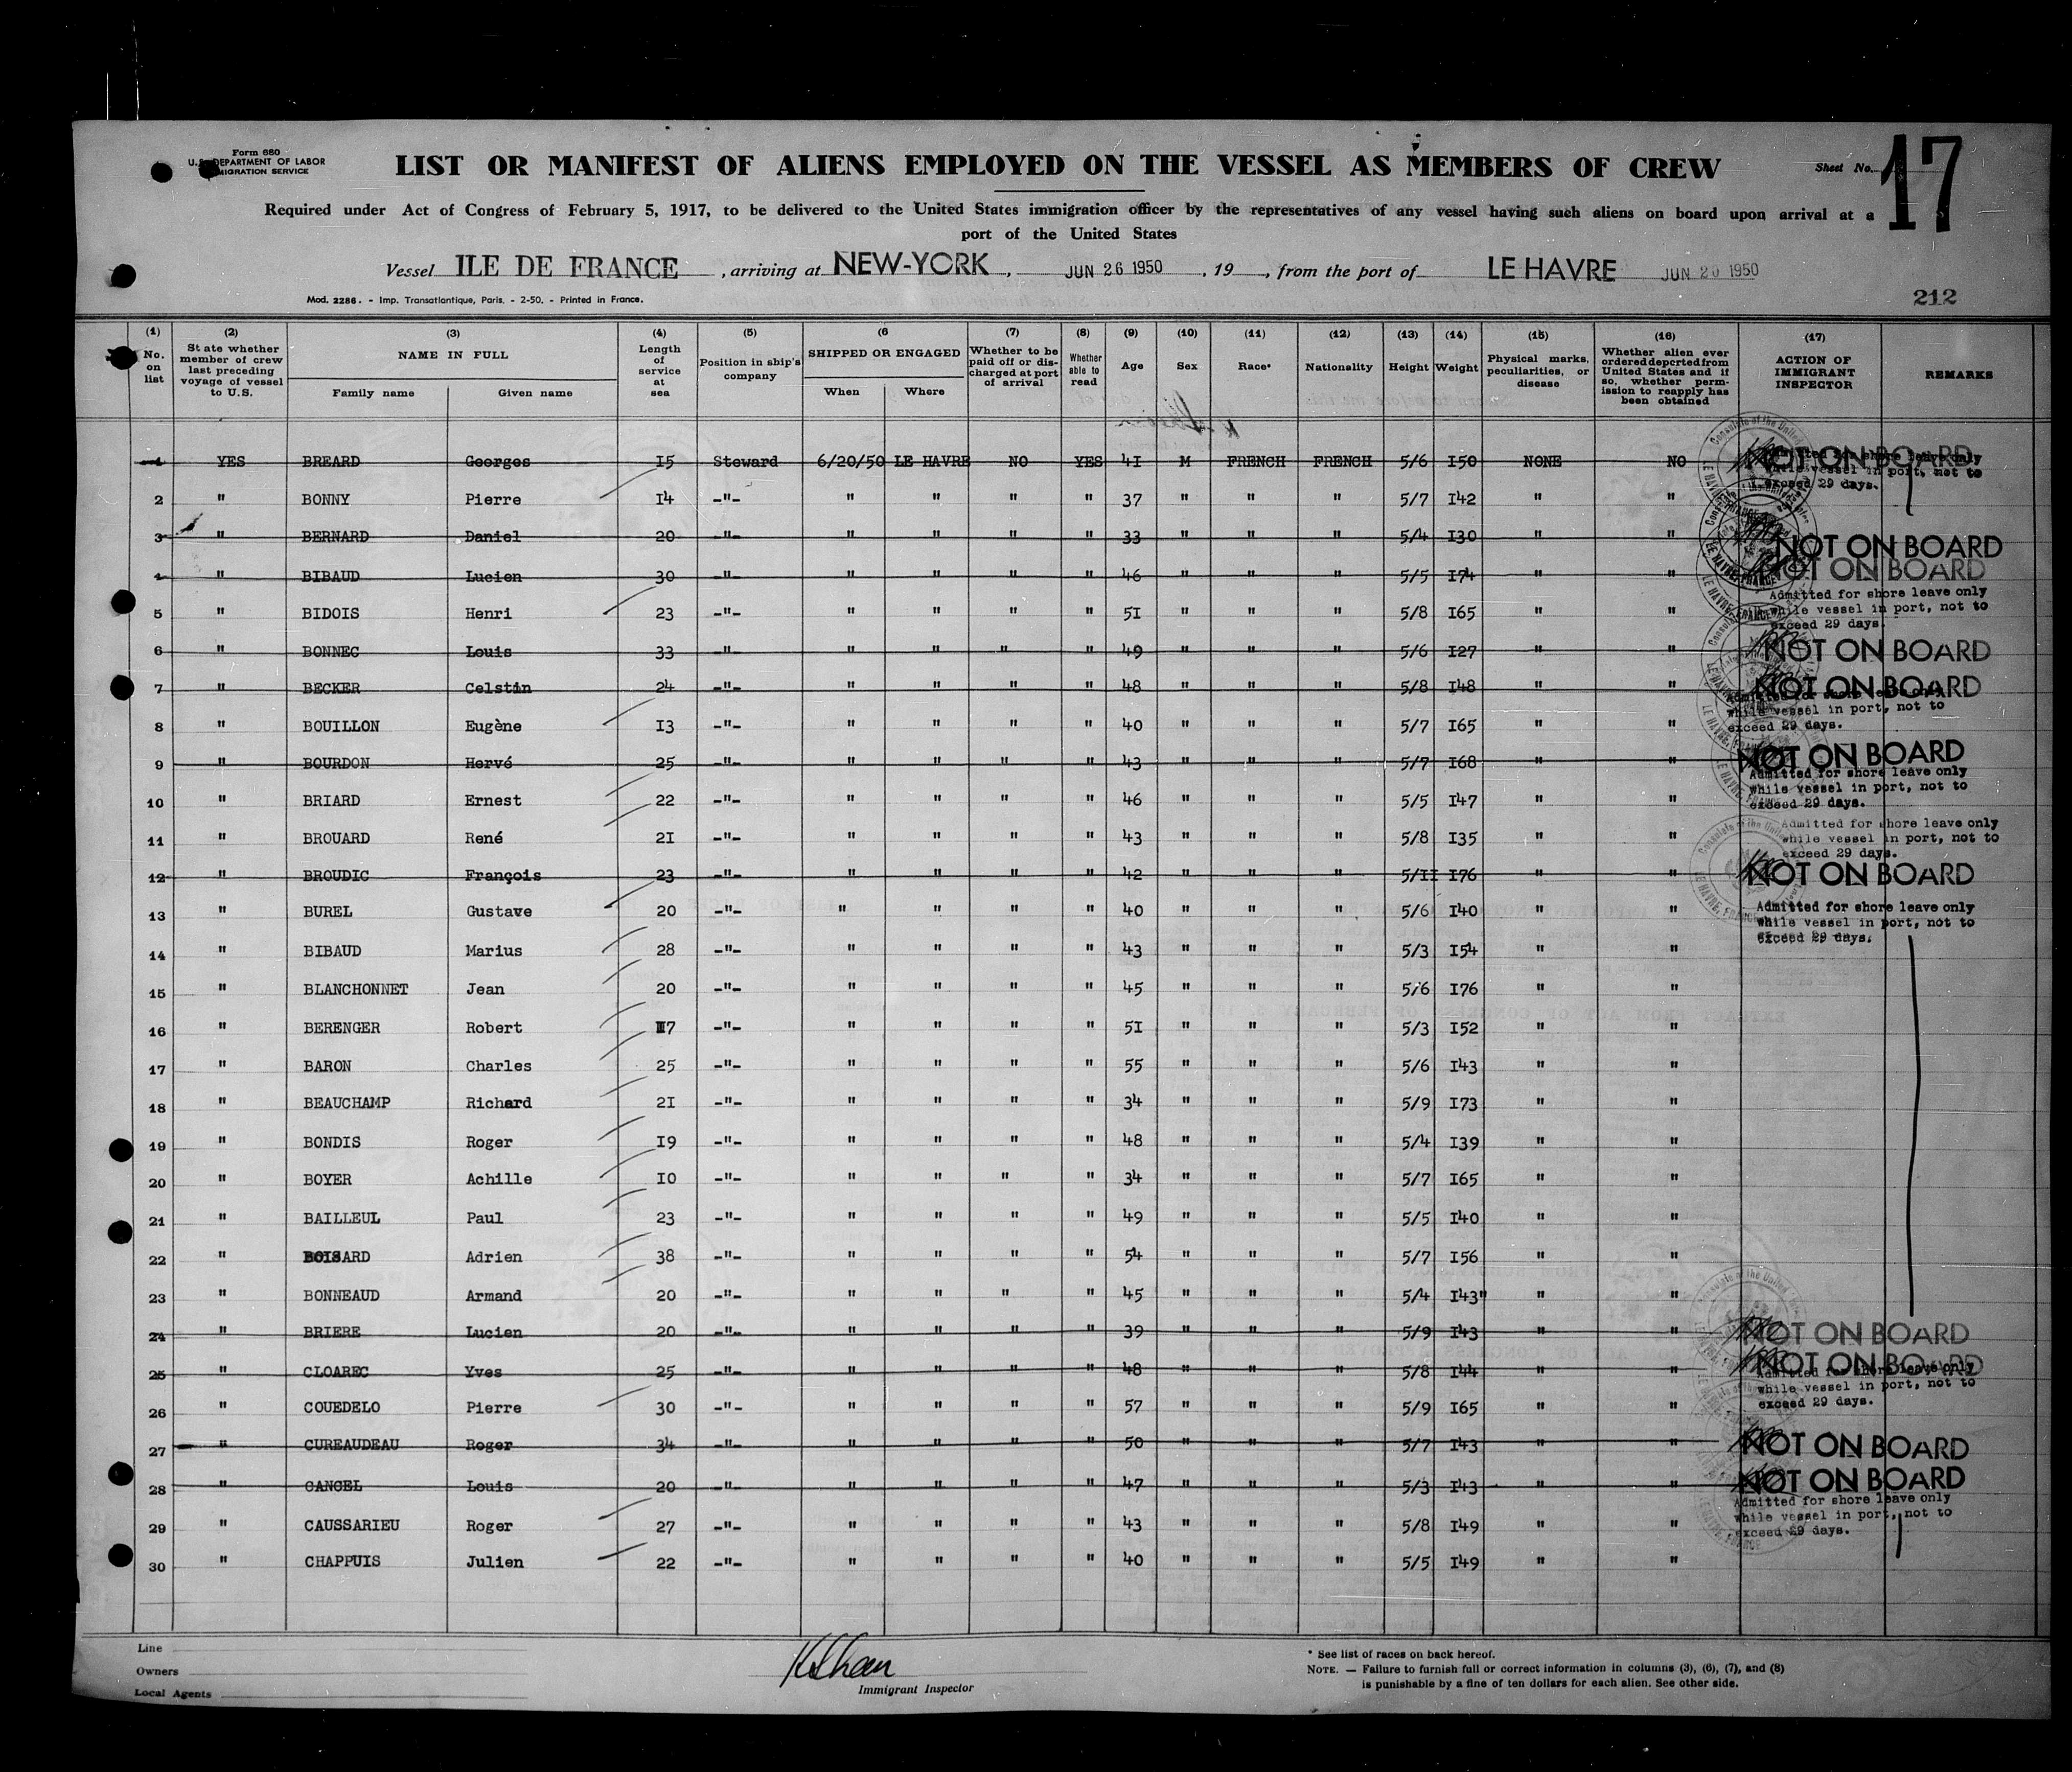 Form 680
U.S. DEPARTMENT OF LABOR
MIGRATION SERVICE
LIST OR MANIFEST OF ALIENS EMPLOYED ON THE VESSEL AS MEMBERS OF CREW
Sheet No. 17
Required under Act of Congress of February 5, 1917, to be delivered to the United States immigration officer by the representatives of any vessel having such aliens on board upon arrival at a
port of the United States
Vessel ILE DE FRANCE, arriving at NEW-YORK, JUN 26 1950, 19, from the port of LE HAVRE JUN 20 1950
Mod. 2286. - Imp. Transatlantique, Paris. - 2-50. - Printed in France.
212
(1) (2) (3) (4) (5) (6 (7) (8) (9) (10) (11) (12) (13) (14) (15) (16) (17)
No. on list
State whether member of crew last preceding voyage of vessel to U.S.
NAME IN FULL
Family name Given name
Length of service at sea
Position in ship's company
SHIPPED OR ENGAGED
When Where
Whether to be paid off or discharged at port of arrival
Whether able to read
Age
Sex
Race*
Nationality
Height
Weight
Physical marks, peculiarities, or disease
Whether alien ever ordered deported from United States and if so, whether permission to reapply has been obtained
ACTION OF IMMIGRANT INSPECTOR
REMARKS
1 YES BREARD Georges 15 Steward 6/20/50 LE HAVRE NO YES 41 M FRENCH FRENCH 5/6 150 NONE NO NOT ON BOARD
Admitted for shore leave only
while vessel in port, not to
exceed 29 days.
2 " BONNY Pierre 14 -"- " " " " 37 " " " 5/7 142 " "
3 " BERNARD Daniel 20 -"- " " " " 33 " " " 5/4 130 " " NOT ON BOARD
4 " BIBAUD Lucien 30 -"- " " " " 46 " " " 5/5 174 " " NOT ON BOARD
Admitted for shore leave only
while vessel in port, not to
exceed 29 days.
5 " BIDOIS Henri 23 -"- " " " " 51 " " " 5/8 165 " "
6 " BONNEC Louis 33 -"- " " " " 49 " " " 5/6 127 " " NOT ON BOARD
7 " BECKER Celstin 24 -"- " " " " 48 " " " 5/8 148 " " NOT ON BOARD
Admitted for shore leave only
while vessel in port, not to
exceed 29 days.
8 " BOUILLON Eugène 13 -"- " " " " 40 " " " 5/7 165 " "
9 " BOURDON Hervé 25 -"- " " " " 43 " " " 5/7 168 " " NOT ON BOARD
Admitted for shore leave only
while vessel in port, not to
exceed 29 days.
10 " BRIARD Ernest 22 -"- " " " " 46 " " " 5/5 147 " "
11 " BROUARD René 21 -"- " " " " 43 " " " 5/8 135 " "
Admitted for shore leave only
while vessel in port, not to
exceed 29 days.
12 " BROUDIC François 23 -"- " " " " 42 " " " 5/11 176 " " NOT ON BOARD
13 " BUREL Gustave 20 -"- " " " " 40 " " " 5/6 140 " "
Admitted for shore leave only
while vessel in port, not to
exceed 29 days.
14 " BIBAUD Marius 28 -"- " " " " 43 " " " 5/3 154 " "
15 " BLANCHONNET Jean 20 -"- " " " " 45 " " " 5/6 176 " "
16 " BERENGER Robert 17 -"- " " " " 51 " " " 5/3 152 " "
17 " BARON Charles 25 -"- " " " " 55 " " " 5/6 143 " "
18 " BEAUCHAMP Richard 21 -"- " " " " 34 " " " 5/9 173 " "
19 " BONDIS Roger 19 -"- " " " " 48 " " " 5/4 139 " "
20 " BOYER Achille 10 -"- " " " " 34 " " " 5/7 165 " "
21 " BAILLEUL Paul 23 -"- " " " " 49 " " " 5/5 140 " "
22 " BOISARD Adrien 38 -"- " " " " 54 " " " 5/7 156 " "
23 " BONNEAUD Armand 20 -"- " " " " 45 " " " 5/4 143" " "
24 " BRIERE Lucien 20 -"- " " " " 39 " " " 5/9 143 " " NOT ON BOARD
25 " CLOAREC Yves 25 -"- " " " " 48 " " " 5/8 144 " " NOT ON BOARD
Admitted for shore leave only
while vessel in port, not to
exceed 29 days.
26 " COUEDELO Pierre 30 -"- " " " " 57 " " " 5/9 165 " "
27 " CUREAUDEAU Roger 34 -"- " " " " 50 " " " 5/7 143 " " NOT ON BOARD
28 " CANCEL Louis 20 -"- " " " " 47 " " " 5/3 143 " " NOT ON BOARD
Admitted for shore leave only
while vessel in port, not to
exceed 29 days.
29 " CAUSSARIEU Roger 27 -"- " " " " 43 " " " 5/8 149 " "
30 " CHAPPUIS Julien 22 -"- " " " " 40 " " " 5/5 149 " "
Line
Owners
Local Agents
Immigrant Inspector
* See list of races on back hereof.
NOTE. — Failure to furnish full or correct information in columns (3), (6), (7), and (8)
is punishable by a fine of ten dollars for each alien. See other side.